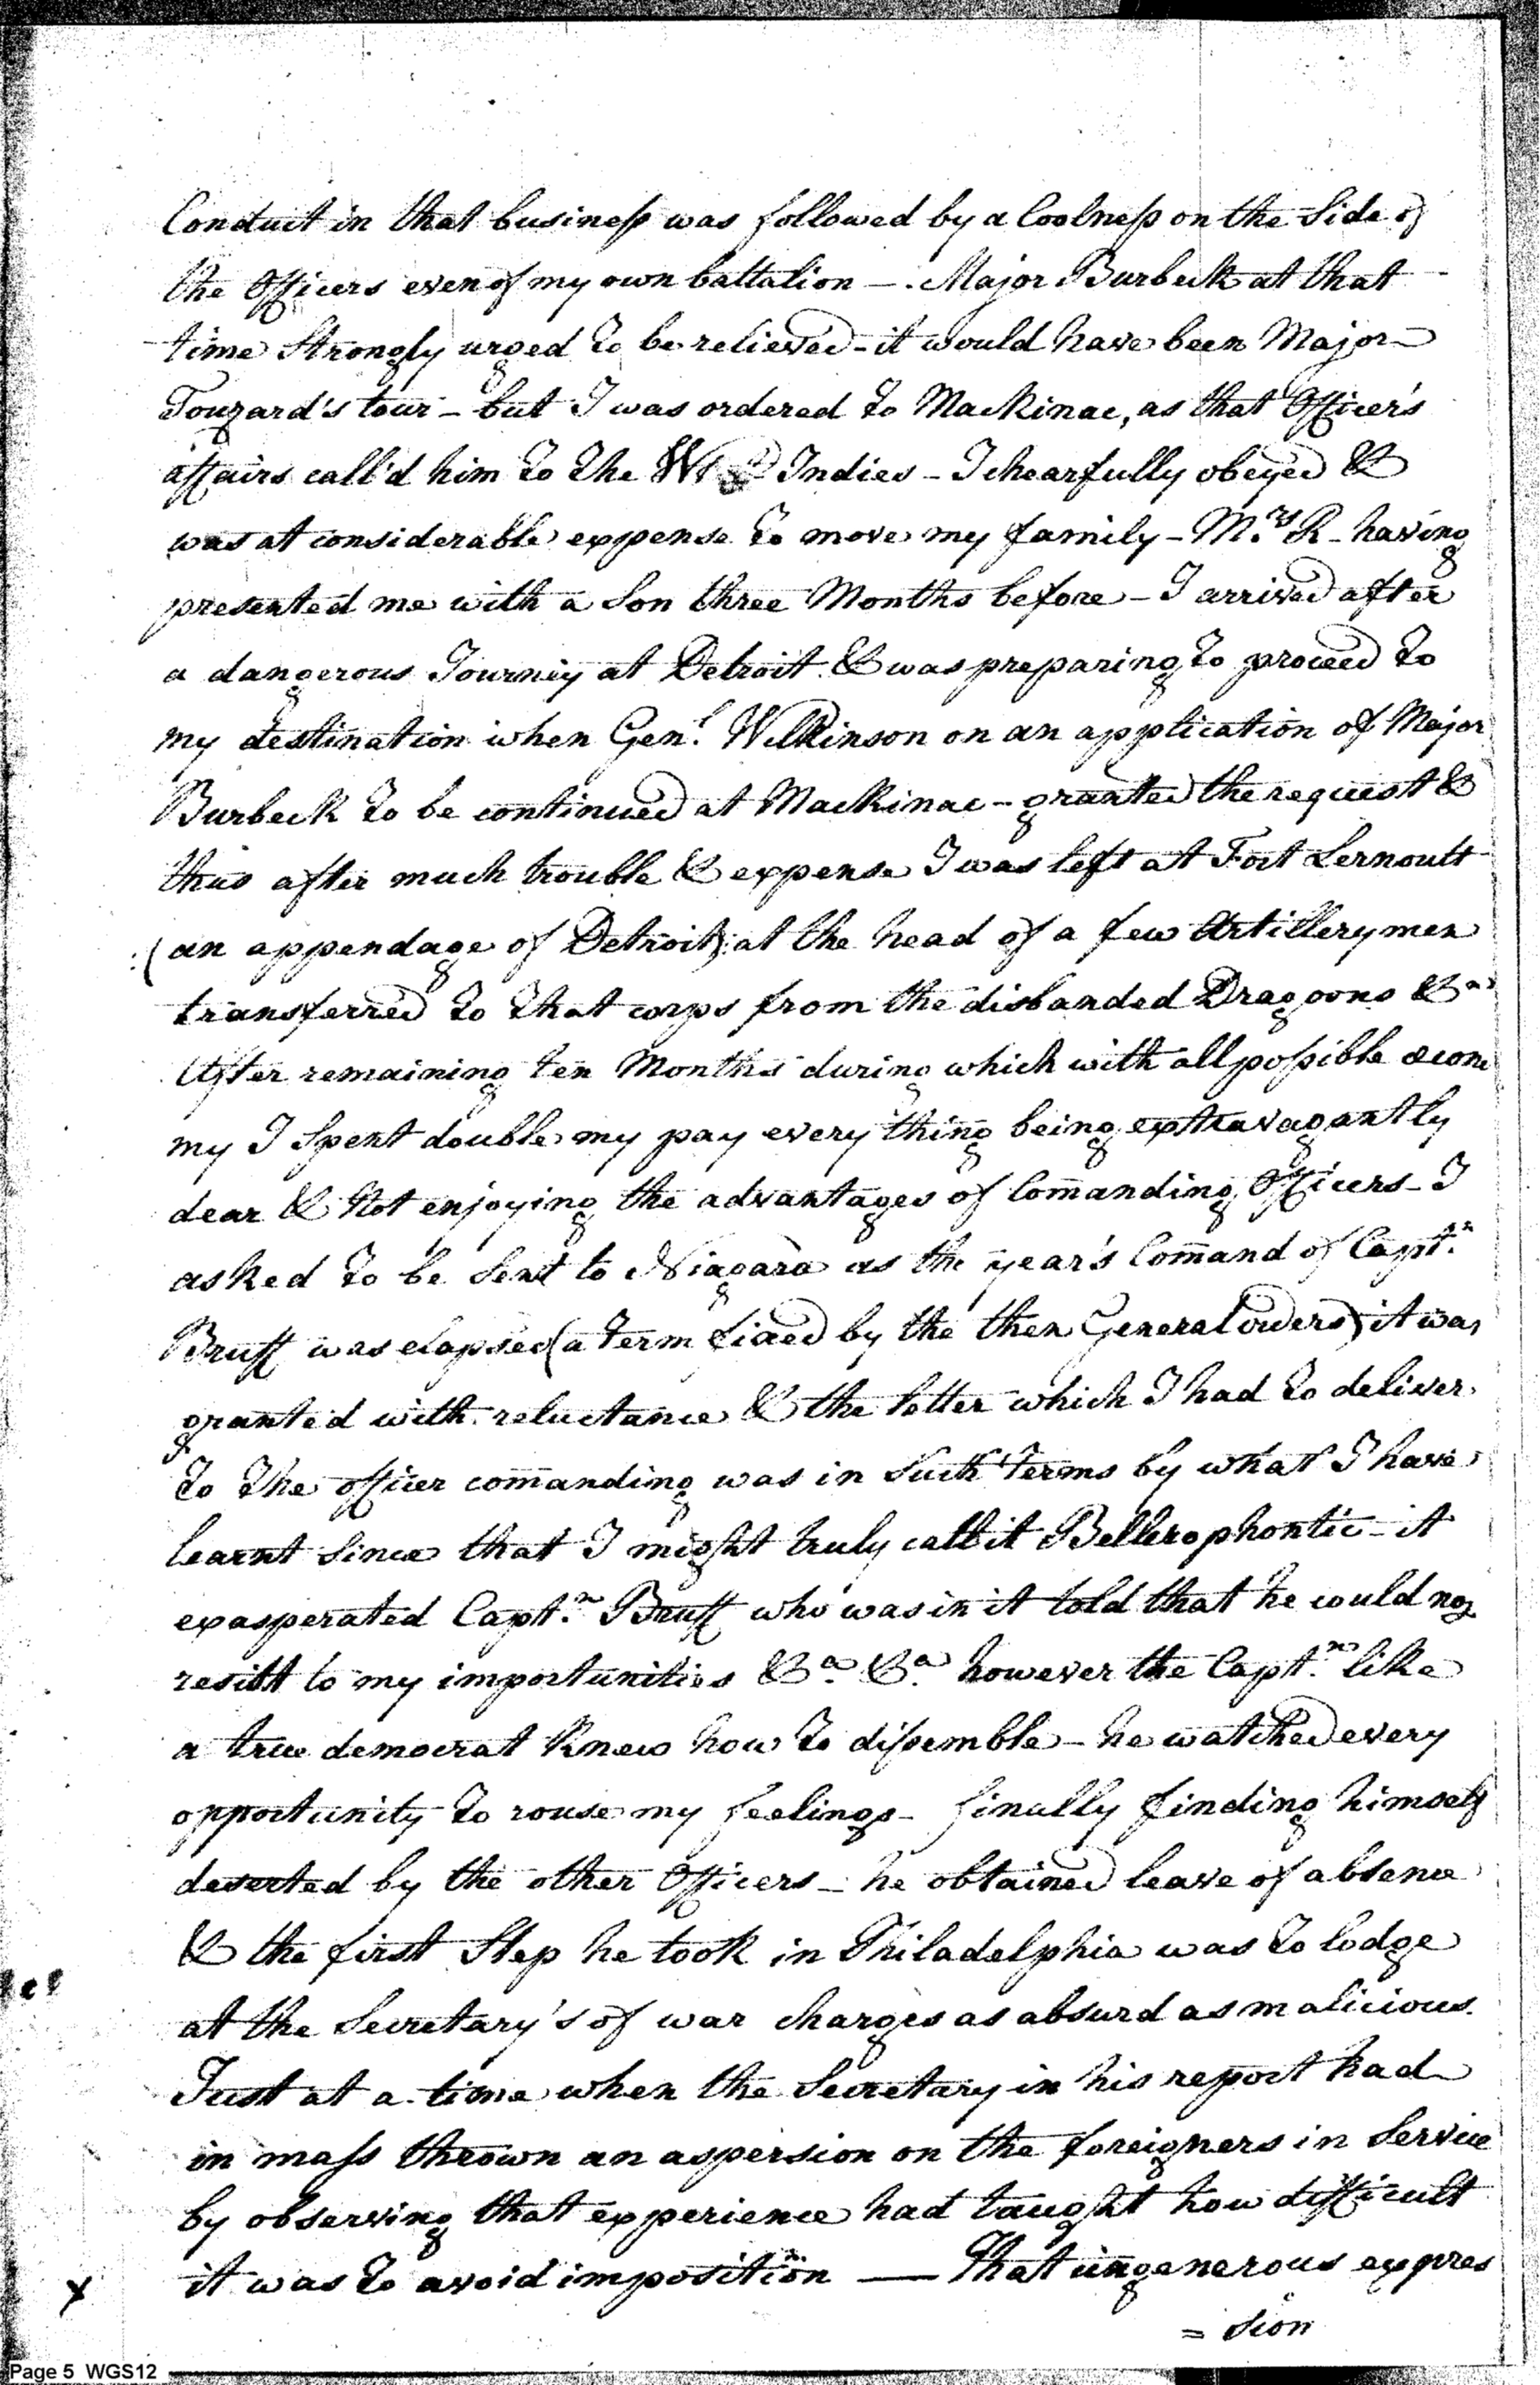 Conduct in that business was followed by a Coolness on the Side of
the Officers even of my own battalion — . Major Burbeck at that
time Strongly urged to be relieved - it would have been Major
Touzard's tour - but I was ordered to Mackinac, as that Officer's
affairs call'd him to the West Indies - I chearfully obeyed &
was at considerable expense to move my family - Mrs. R - having
presented me with a Son three Months before - I arrived after
a dangerous Journey at Detroit & was preparing to proceed to
my destination when Genl. Wilkinson on an application of Major
Burbeck to be continued at Mackinac - granted the request &
thus after much trouble & expense I was left at Fort Lernoult
(an appendage of Detroit) at the head of a few Artillerymen
transferred to that corps from the disbanded Dragoons &a
After remaining ten Months during which with all possible œcono
my I Spent double my pay every thing being extravagantly
dear & Not enjoying the advantages of Com̄anding Officers - I
asked to be Sent to Niagara as the year's Com̄and of Captn.
Bruff was elapsed (a term fixed by the then General orders) it was
granted with reluctance & the letter which I had to deliver
to the officer com̄anding was in Such terms by what I have
learnt Since that I might truly call it Bellerophontic - it
exasperated Captn. Bruff who was in it told that he could not
resist to my importunities &a. &a. however the Captn. like
a true democrat Knew how to dissemble - he watched every
opportunity to rouse my feelings - finally finding himself
deserted by the other Officers - he obtained leave of absence
& the first Step he took in Philadelphia was to lodge
at the Secretary's of war charges as absurd as malicious.
Just at a time when the Secretary in his report had
in mass thrown an aspersion on the foreigners in Service
by observing that experience had taught how difficult
x it was to avoid imposition — That ungenerous expres
= sion
Page 5 WGS12